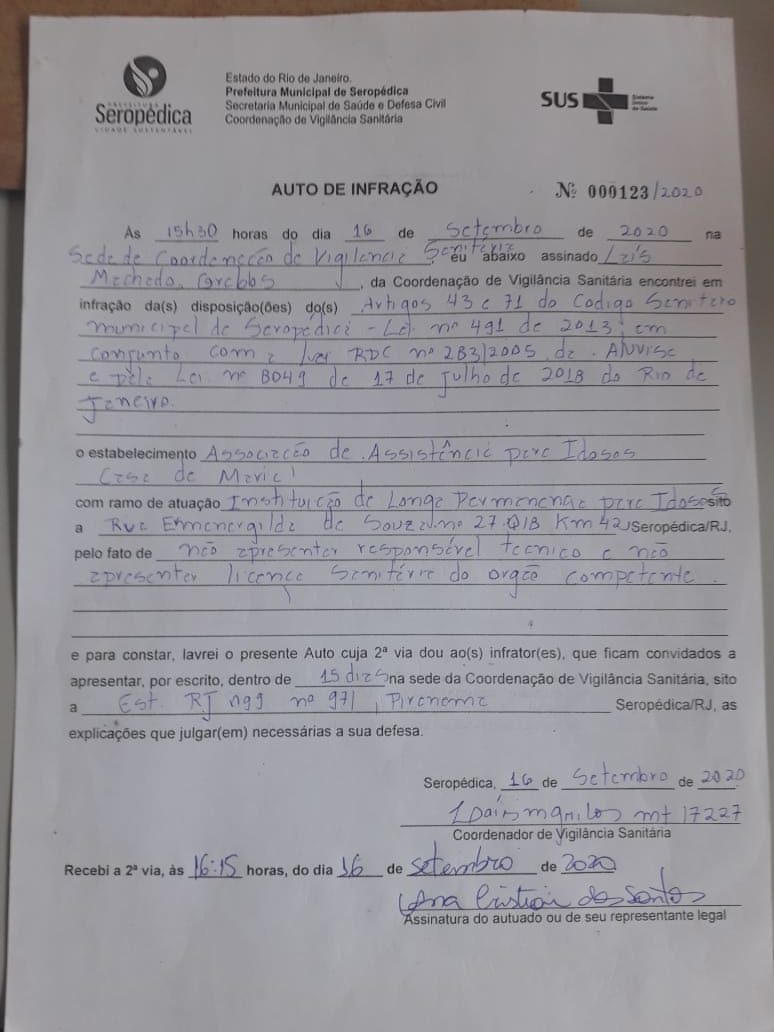 PREFEITURA
Seropédica
CIDADE SUSTENTÁVEL
Estado do Rio de Janeiro.
Prefeitura Municipal de Seropédica
Secretaria Municipal de Saúde e Defesa Civil
Coordenação de Vigilância Sanitária
SUS
Sistema
Único
de Saúde
AUTO DE INFRAÇÃO
Nº 000123/2020
As 15h30 horas do dia 16 de Setembro de 2020 na
Sede de Coordenação de Vigilancia Sanitária, eu abaixo assinado
Machado, da Coordenação de Vigilância Sanitária encontrei em
infração da(s) disposição(ões) do(s) Artigos 43 e 71 do Codigo Sanitáro
municipal de Seropédica - Lei nº 491 de 2013; em
conjunto com a RDC nº 283/2005 da
e pela Lei nº 8049 de 17 de Julho de 2018 do Rio de
Janeiro.
o estabelecimento Associação de Assistência para Idosos
Casa de Maria
com ramo de atuação Instituição de Longa Permanencia para Idosos sito
a Rua de Souza nº 27 Km 42, Seropédica/RJ,
pelo fato de não apresentar responsável tecnico e não
apresentar licença Sanitária do orgão competente.
e para constar, lavrei o presente Auto cuja 2ª via dou ao(s) infrator(es), que ficam convidados a
apresentar, por escrito, dentro de 15 dias na sede da Coordenação de Vigilância Sanitária, sito
a Est. RJ 099 nº 971, Piranema Seropédica/RJ, as
explicações que julgar(em) necessárias a sua defesa.
Seropédica, 16 de Setembro de 2020
mt 17227
Coordenador de Vigilância Sanitária
Recebi a 2ª via, às 16:15 horas, do dia 16 de setembro de 2020
Ana dos Santos
Assinatura do autuado ou de seu representante legal